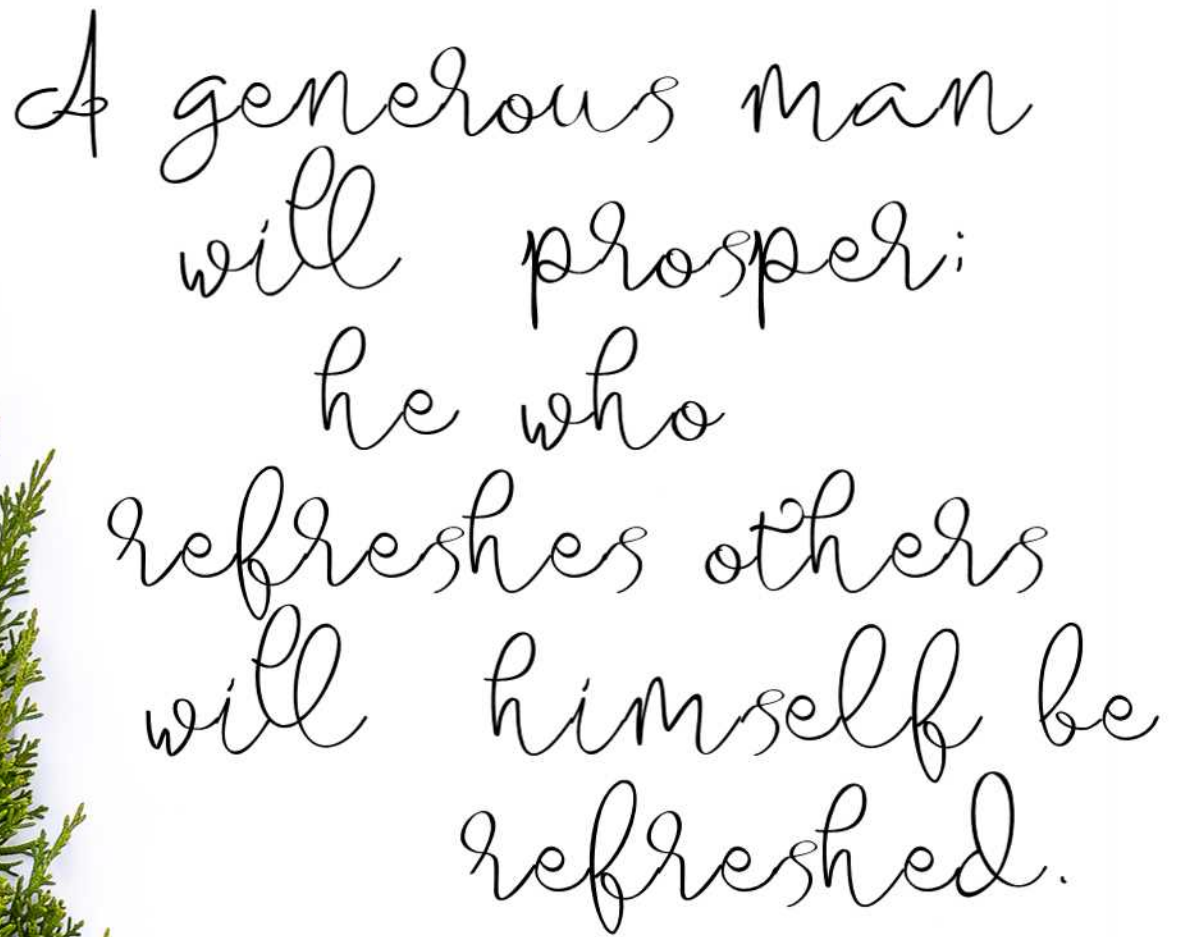 A generous man
will prosper;
he who
refreshes others
will himself be
refreshed.